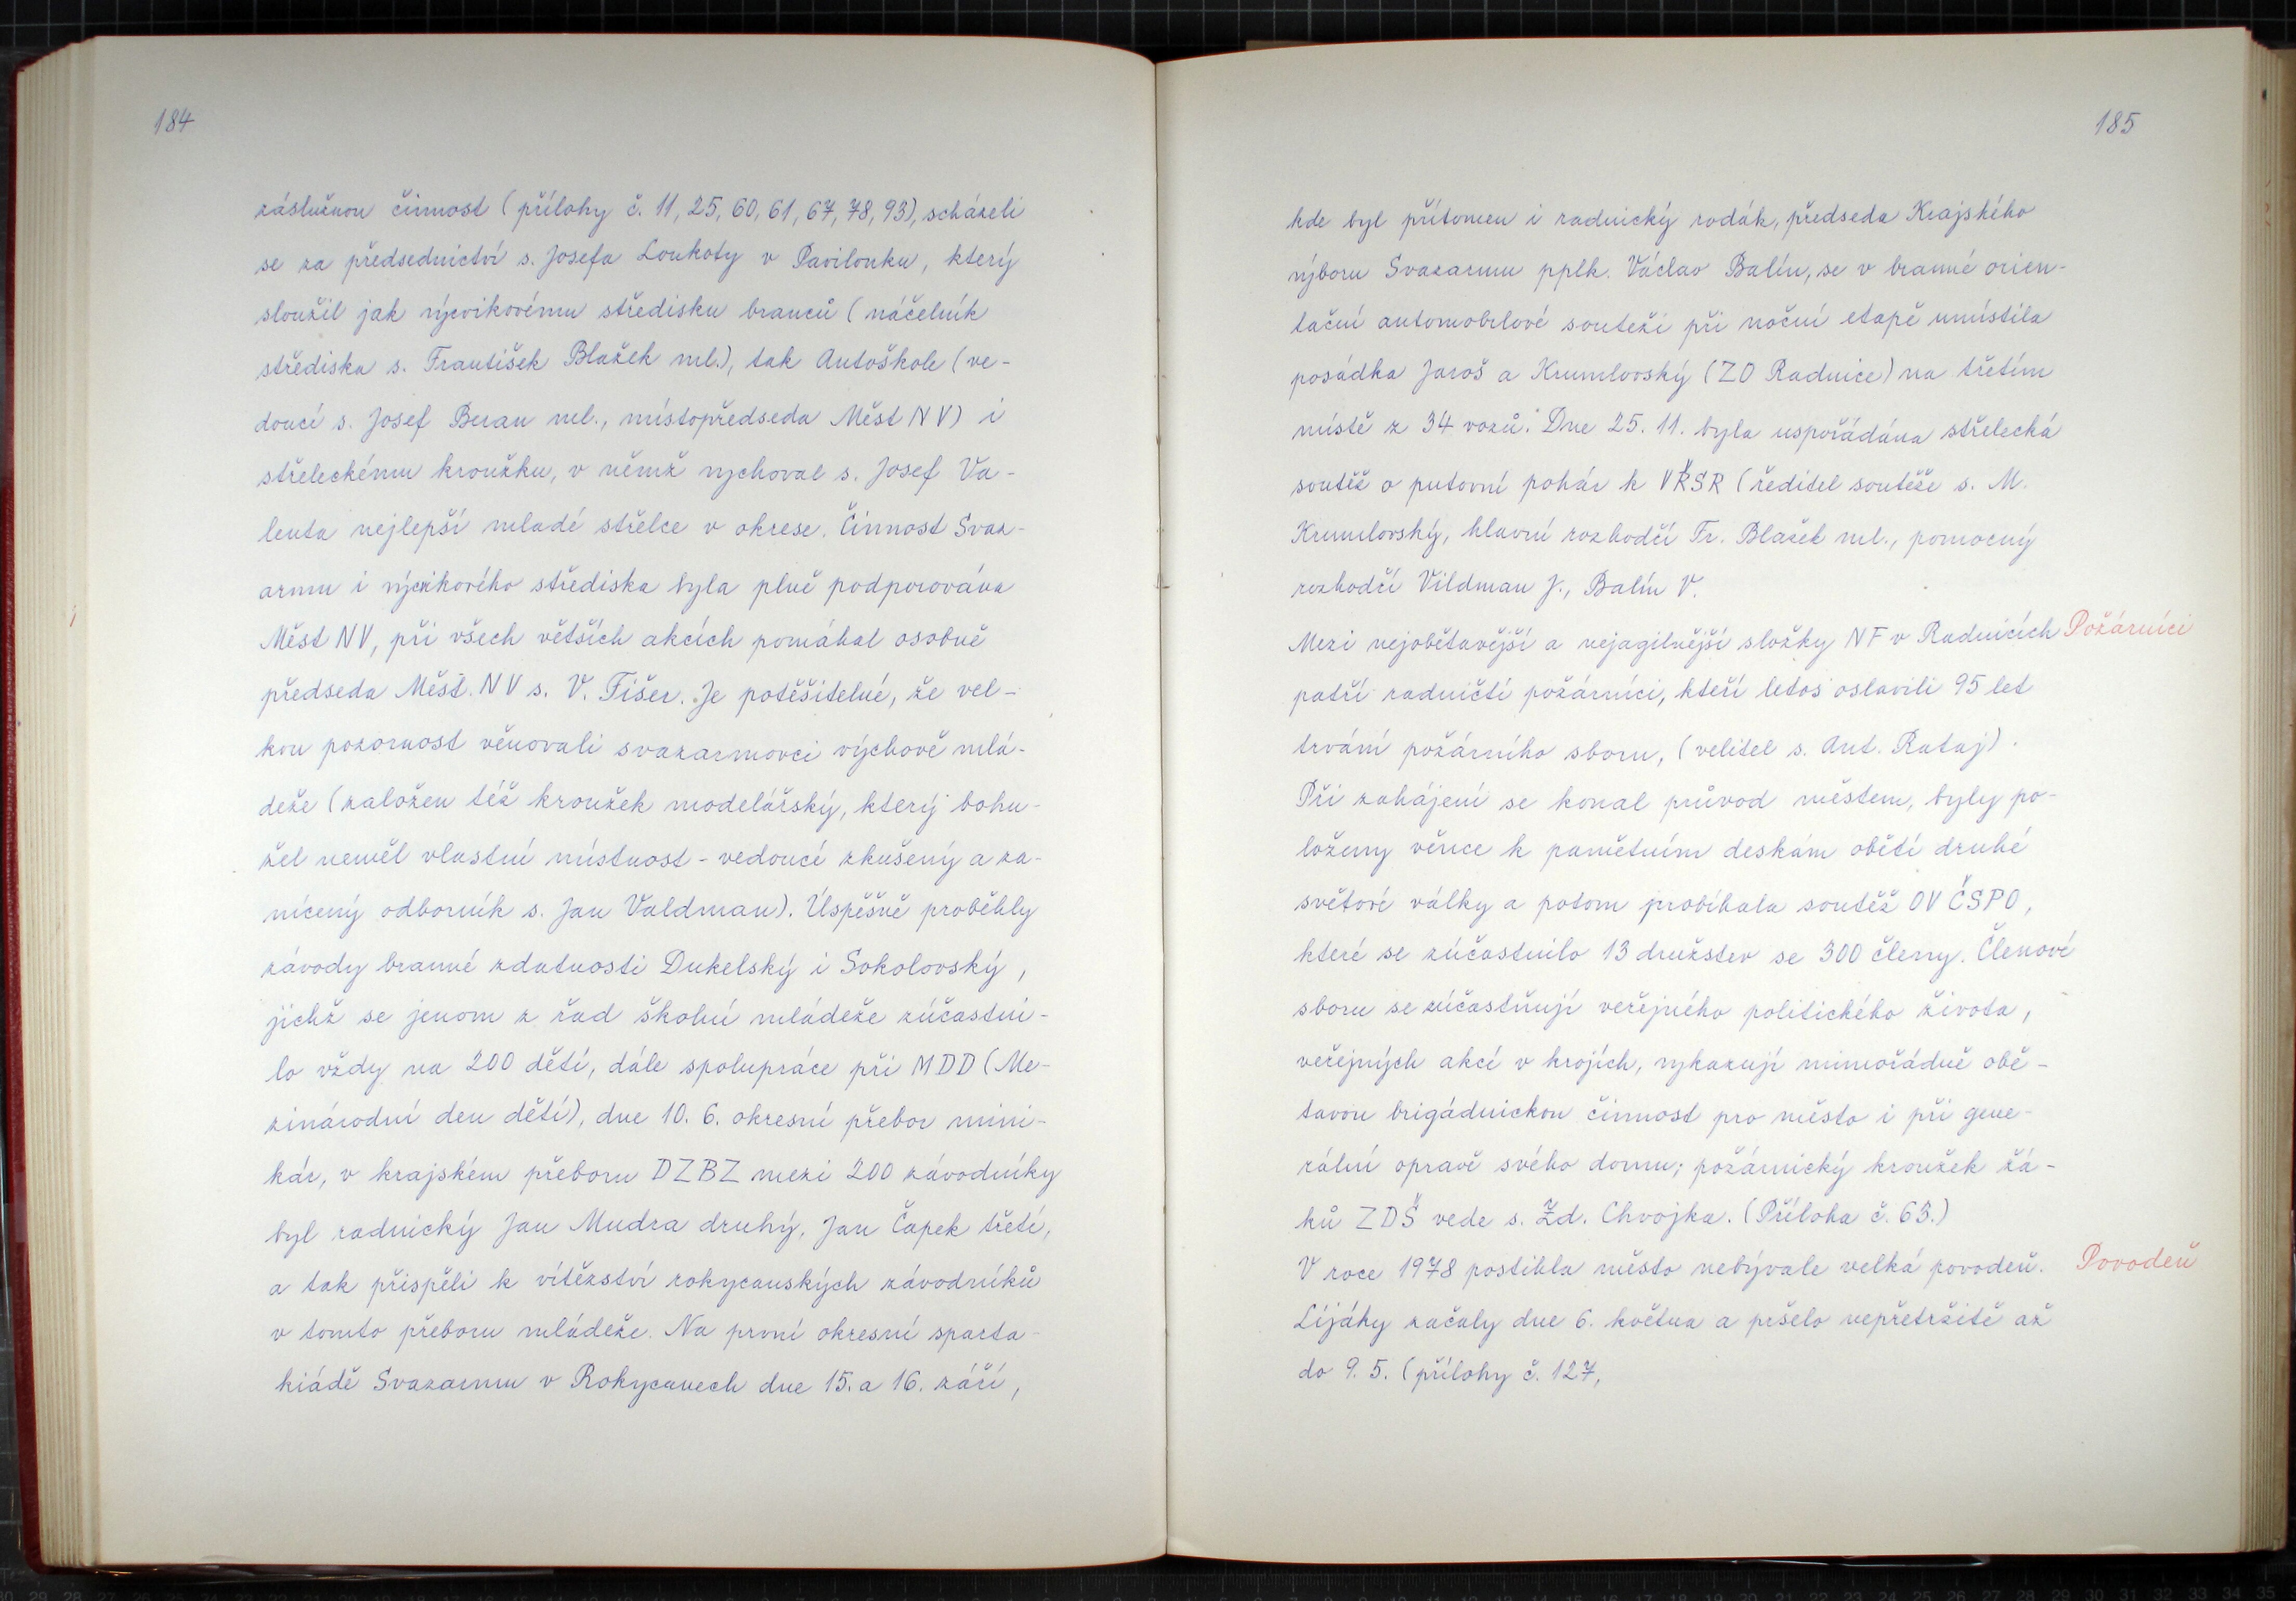 184
záslužnou činnost (přílohy č. 11, 25, 60, 61, 67, 78, 93), scházeli
se za předsednictví s. Josefa Loukoty v Pavilonku, který
sloužil jak výcvikovému středisku branců (náčelník
střediska s. František Blažek ml.), tak Autoškole (ve-
doucí s. Josef Beran ml., místopředseda Měst NV) i
střeleckému kroužku, v němž vychoval s. Josef Va-
lenta nejlepší mladé střelce v okrese. Činnost Svaz-
armu i výcvikového střediska byla plně podporována
Měst NV, při všech větších akcích pomáhal osobně
předseda Měst. NV s. V. Fišer. Je potěšitelné, že vel-
kou pozornost věnovali svazarmovci výchově mlá-
deže (založen též kroužek modelářský, který bohu-
žel neměl vlastní místnost - vedoucí zkušený a za-
nícený odborník s. Jan Valdman). Úspěšně proběhly
závody branné zdatnosti Dukelský i Sokolovský,
jichž se jenom z řad školní mládeže zúčastni-
lo vždy na 200 dětí, dále spolupráce při MDD (Me-
zinárodní den dětí), dne 10. 6. okresní přebor mini-
kár, v krajském přeboru DZBZ mezi 200 závodníky
byl radnický Jan Mudra druhý, Jan Čapek třetí,
a tak přispěli k vítězství rokycanských závodníků
v tomto přeboru mládeže. Na první okresní sparta-
kiádě Svazarmu v Rokycanech dne 15. a 16. září,
185
kde byl přítomen i radnický rodák, předseda Krajského
výboru Svazarmu pplk. Václav Balín, se v branné orien-
tační automobilové souteži při noční etapě umístila
posádka Jaroš a Krumlovský (ZO Radnice) na třetím
místě z 34 vozů. Dne 25. 11. byla uspořádána střelecká
soutěž o putovní pohár k VŘSR (ředitel soutěže s. M.
Krumlovský, hlavní rozhodčí Fr. Blažek ml., pomocný
rozhodčí Vildman J., Balín V.
Mezi nejobětavější a nejagilnější složky NF v Radnicích Požárníci
patří radničtí požárníci, kteří letos oslavili 95 let
trvání požárního sboru, (velitel s. Ant. Rataj).
Při zahájení se konal průvod městem, byly po-
loženy věnce k pamětním deskám obětí druhé
světové války a potom probíhala soutěž OV ČSPO,
které se zúčastnilo 13 družstev se 300 členy. Členové
sboru se zúčastňují veřejného politického života,
veřejných akcí v krojích, vykazují mimořádně obě-
tavou brigádnickou činnost pro město i při gene-
rální opravě svého domu; požárnický kroužek žá-
ků ZDŠ vede s. Zd. Chvojka. (Příloha č. 63.)
V roce 1978 postihla město nebývale velká povodeň. Povodeň
Lijáky začaly dne 6. května a pršelo nepřetržitě až
do 9. 5. (přílohy č. 127,